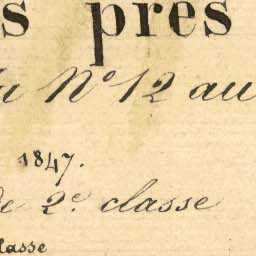 s près
du N° 12 au
1847.
de 2e. classe
lasse